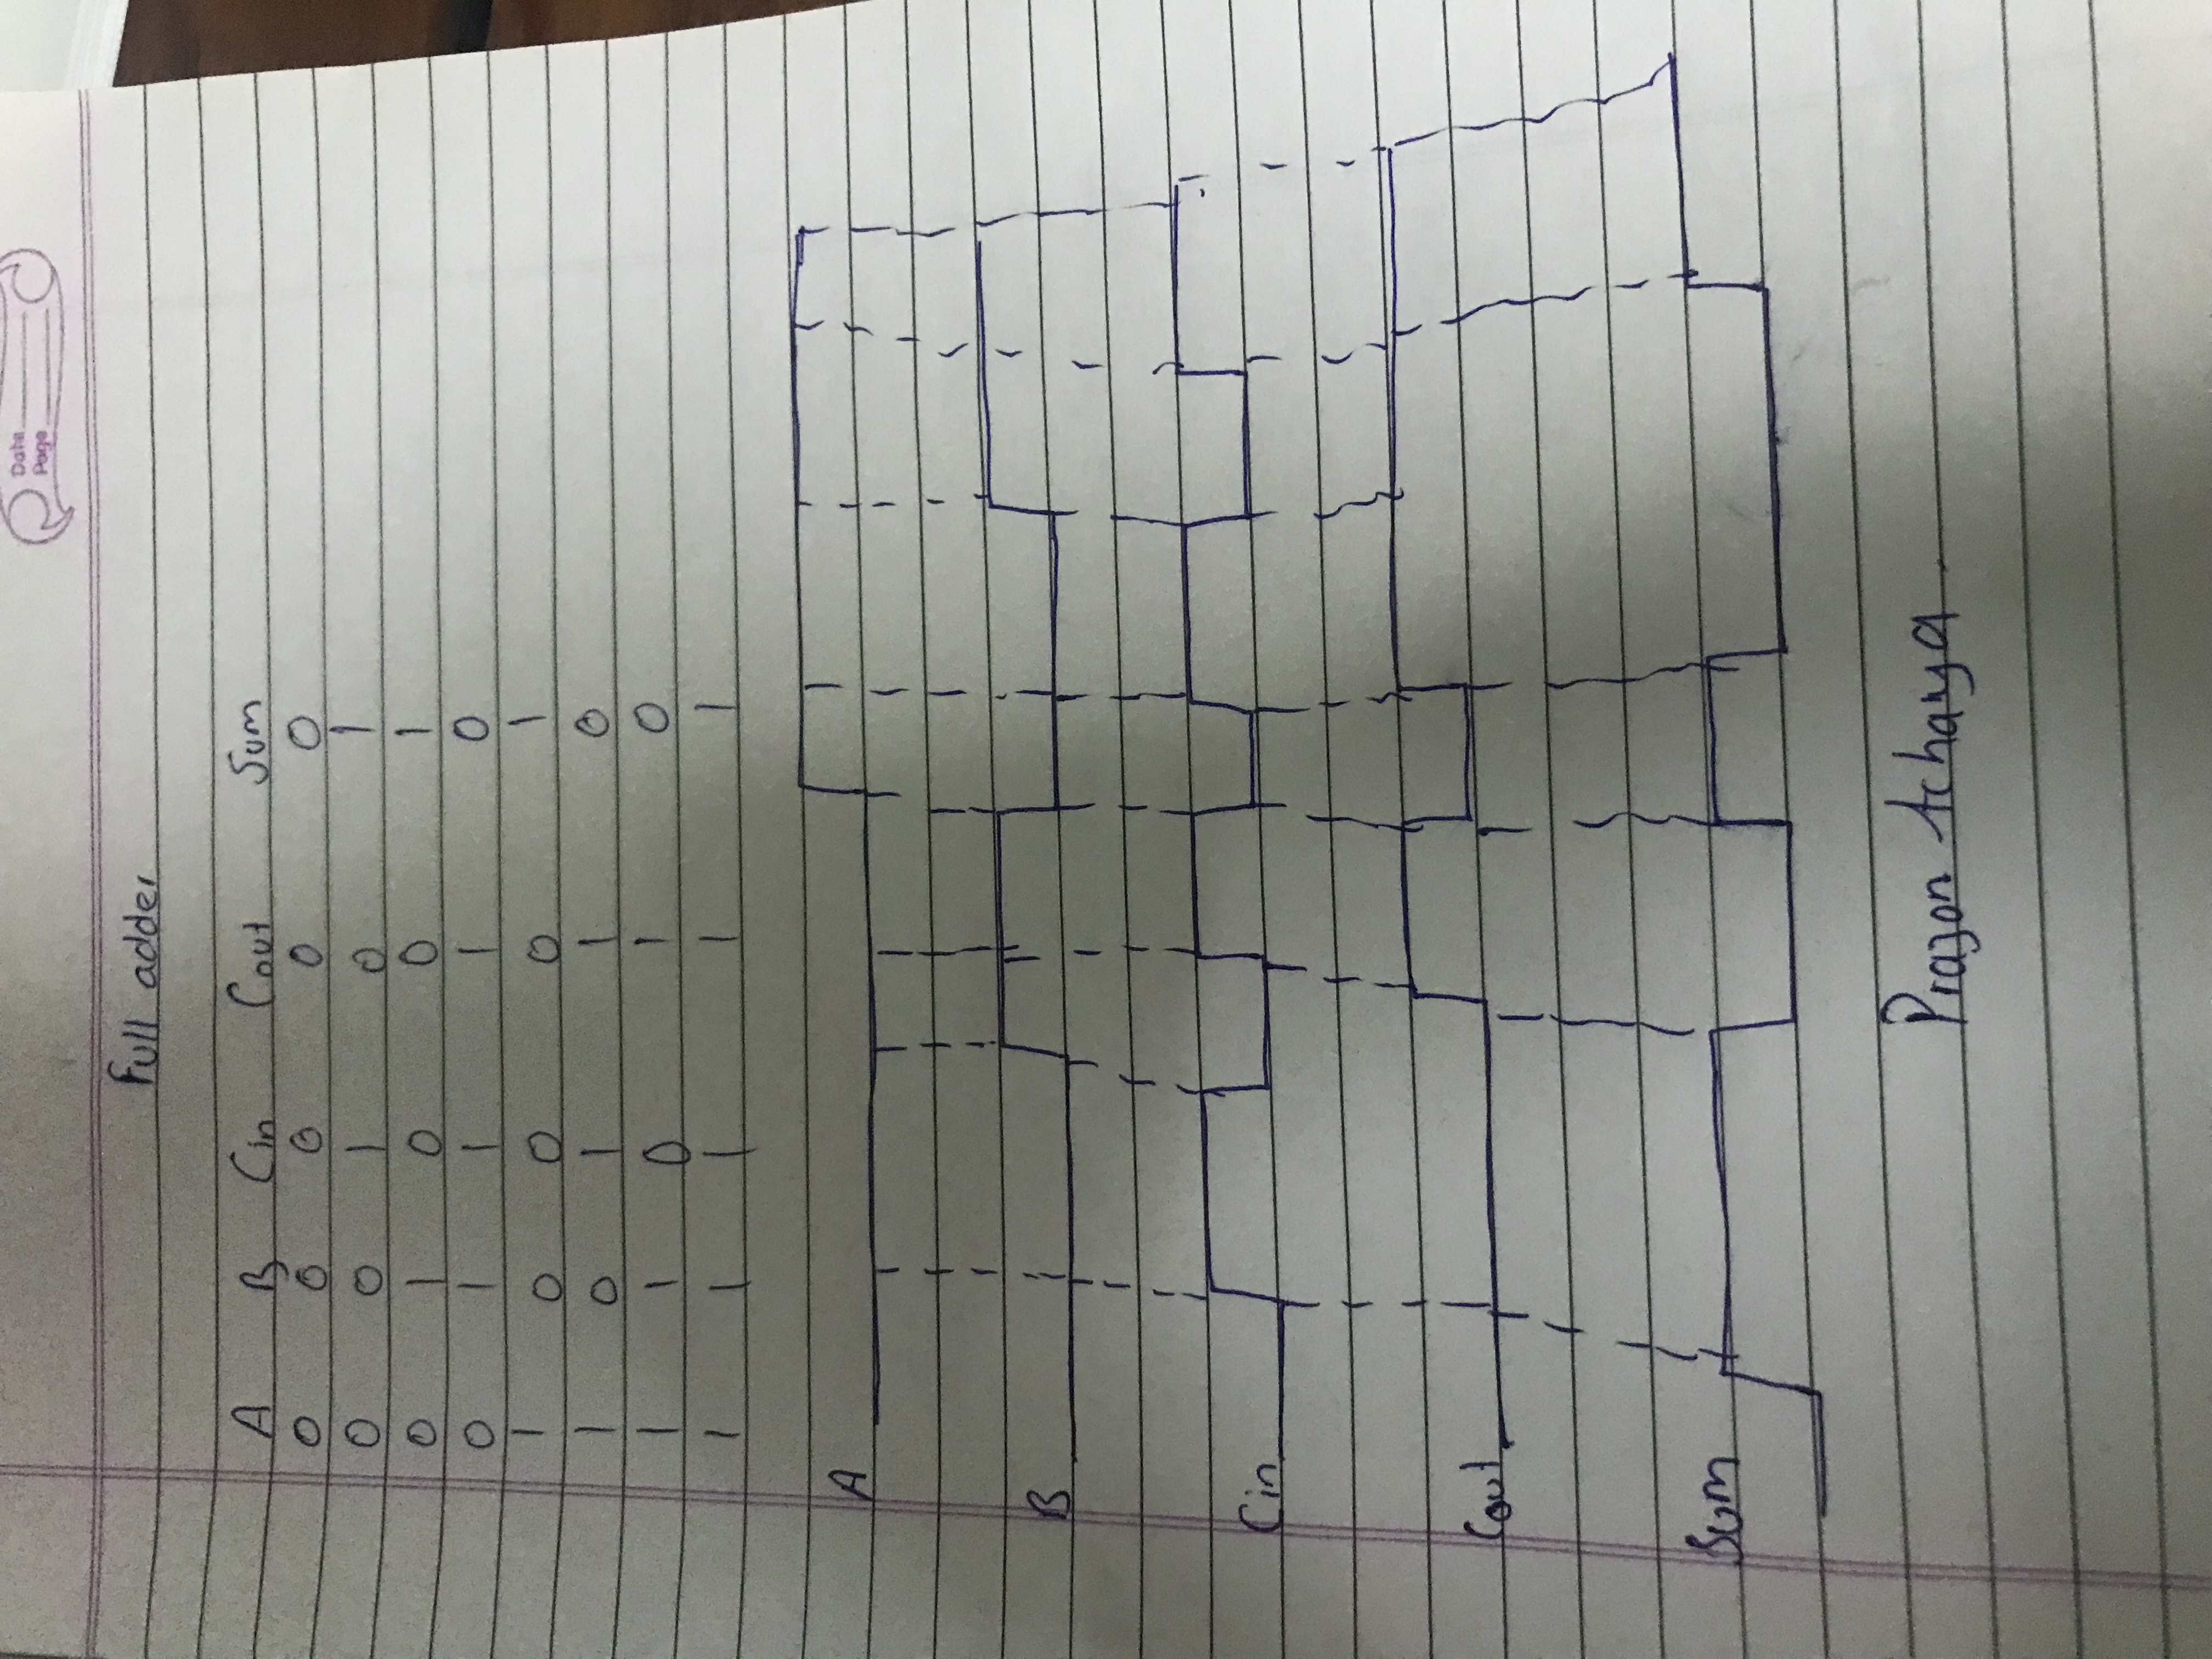 Date
Page
Full adder
A B Cin Cout Sum
0 0 0 0 0
0 0 1 0 1
0 1 0 0 1
0 1 1 1 0
1 0 0 0 1
1 0 1 1 0
1 1 0 1 0
1 1 1 1 1
A
B
Cin
Cout
Sum
Prazon Acharya